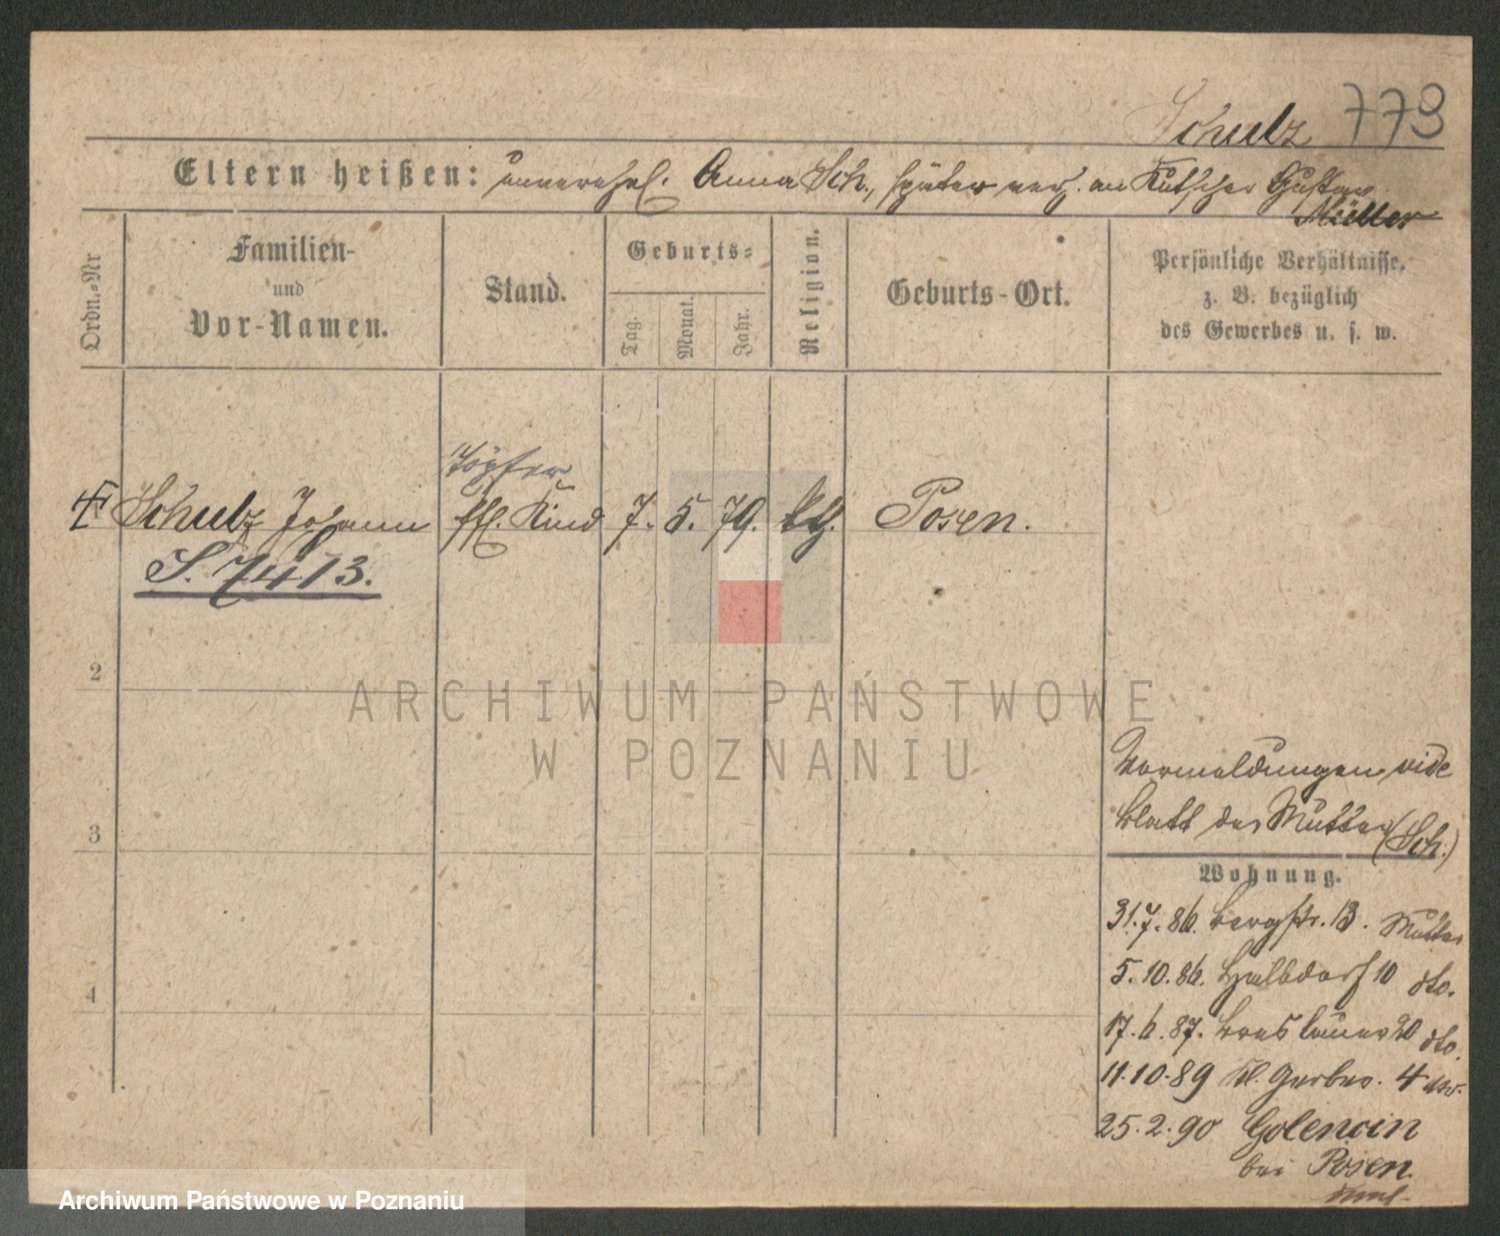 Schulz 773
Eltern heißen: unverehel. Anna Sch., später verh. an Kutscher Gustav
Müller
Ordn.-Nr
Familien-
und
Vor-Namen.
Stand.
Geburts-
Tag.
Monat.
Jahr.
Religion.
Geburts-Ort.
Persönliche Verhältnisse,
z. B. bezüglich
des Gewerbes u. s. w.
Töpfer
Schulz Johann Kind 7. 5. 79. kth. Posen.
S. 7413.
2
3
4
Vormeldungen vide
Blatt der Mutter (Sch.)
Wohnung.
31.7.86. Bergstr. 13. Mutter
5.10.86. Halbdorf 10 dto.
17.6.87. Breslauer 20 dto.
11.10.89 Kl. Gerber. 4
25.2.90 Golencin
bei Posen
ARCHIWUM PAŃSTWOWE
W POZNANIU
Archiwum Państwowe w Poznaniu